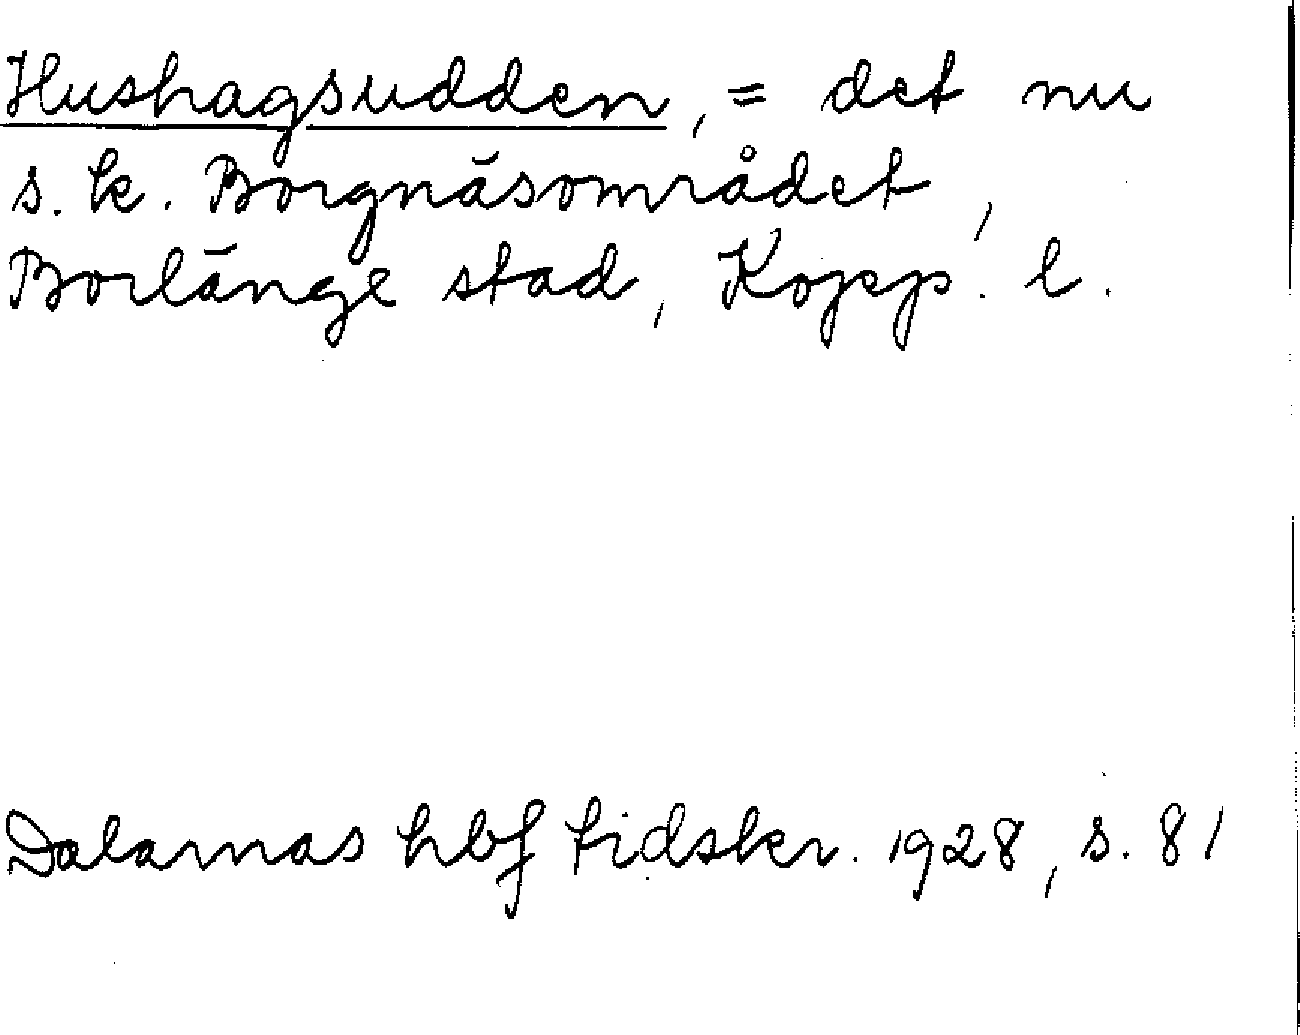 Hushagsudden, = det nu
s. k. Borgnäsområdet,
Borlänge stad, Kopp. l.
Dalarnas hbf tidskr. 1928, s. 81